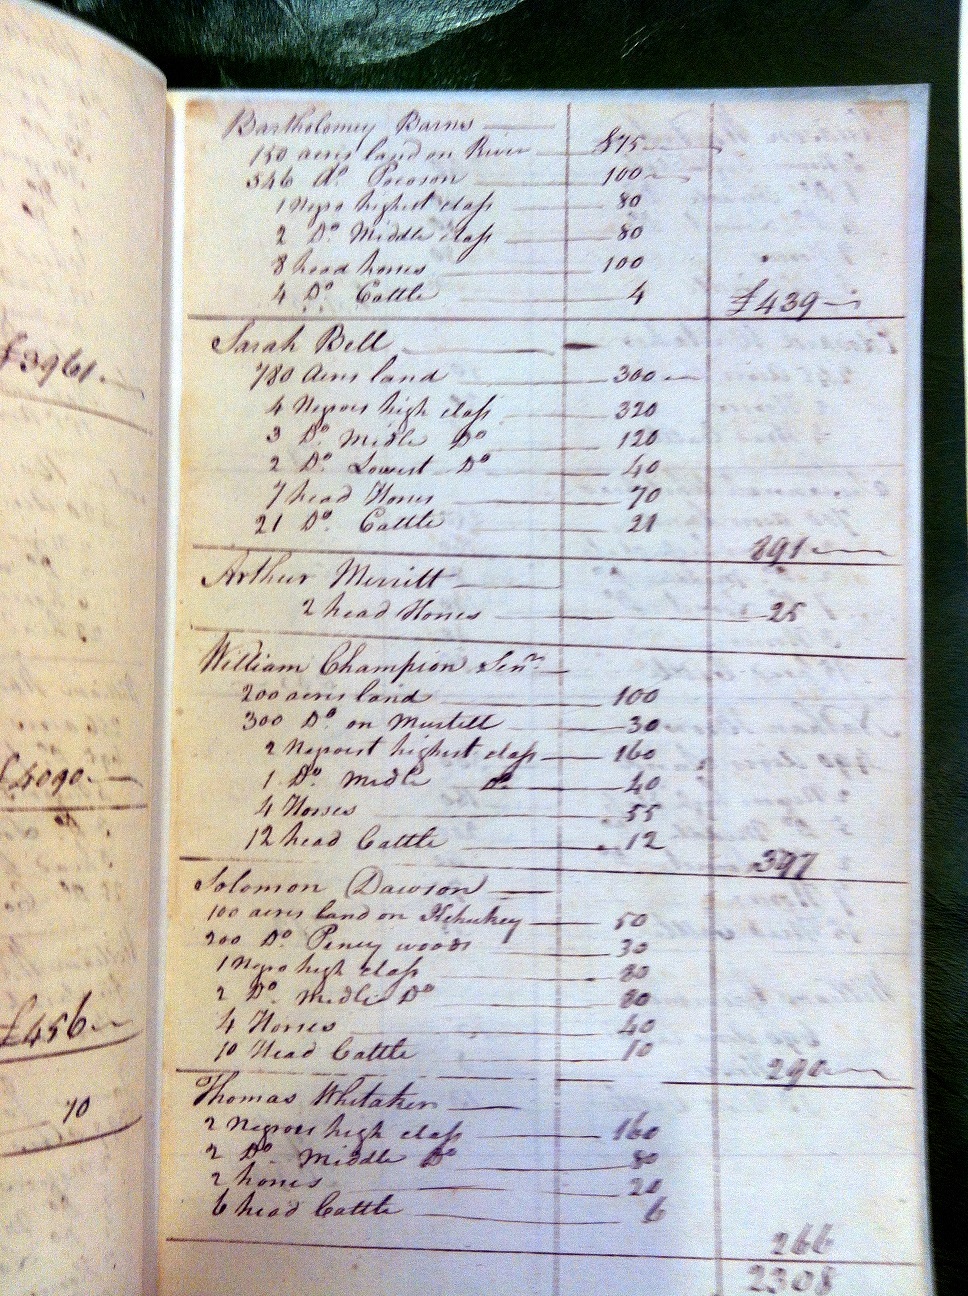 Bartholomey Barns
150 acres land on River £75
346 Do. Pocoson 100
1 Negro highest class 80
2 Do. Middle class 80
8 head horses 100
4 Do. Cattle 4
£439
Sarah Bell
780 Acres land 300
4 Negroes high class 320
3 Do. Midle Do 120
2 Do. Lowest Do 40
7 head Horses 70
21 Do. Cattle 21
891
Arthur Merritt
2 head Horses 25
William Champion Senr.
200 acres land 100
300 Do. on 30
2 Negroest highest class 160
1 Do. Midle Do. 40
4 Horses 55
12 head Cattle 12
397
Solomon Dawson
100 acres land on Kehukey 50
200 Do. Piney woods 30
1 Negro high class 80
2 Do. Midle Do 80
4 Horses 40
10 Head Cattle 10
290
Thomas Whitaker
2 Negroes high class 160
2 Do. Middle Do 80
2 horses 20
6 head Cattle 6
266
2308
£3961
£4090
£456
70